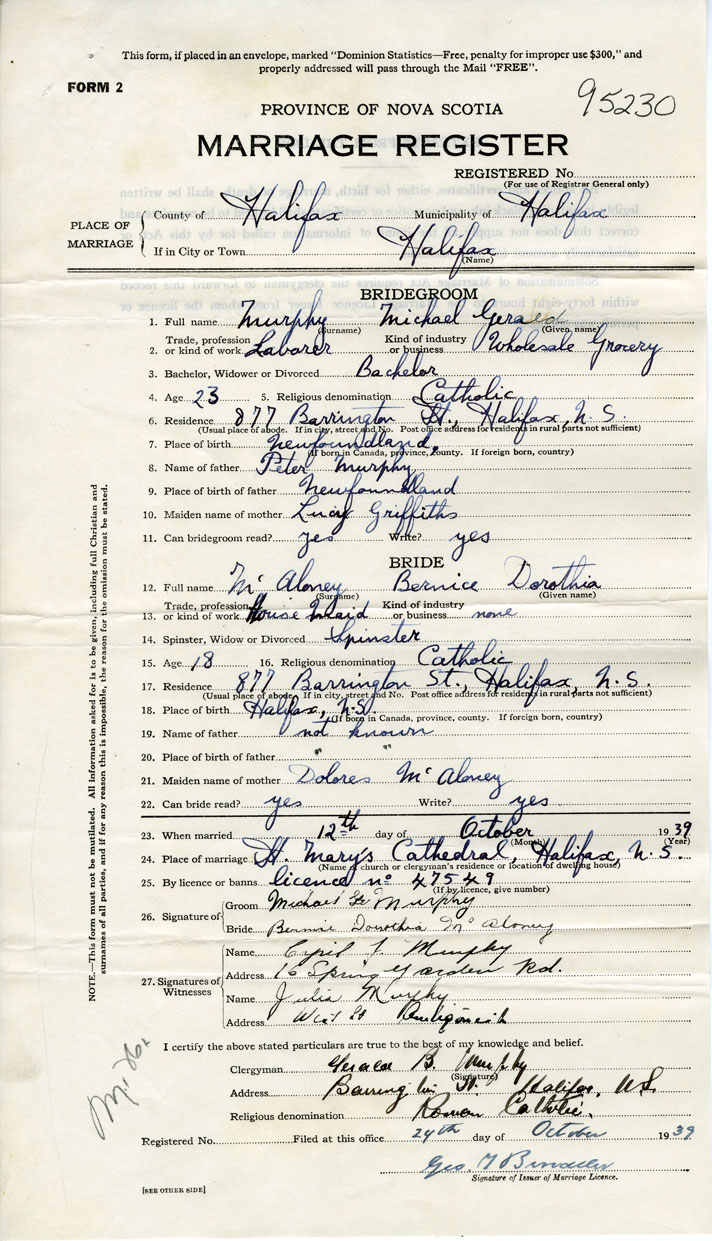 This form, if placed in an envelope, marked "Dominion Statistics—Free, penalty for improper use $300," and
properly addressed will pass through the Mail "FREE".
FORM 2
95230
PROVINCE OF NOVA SCOTIA
MARRIAGE REGISTER
REGISTERED No.
(For use of Registrar General only)
PLACE OF MARRIAGE
County of Halifax Municipality of Halifax
If in City or Town Halifax
(Name)
BRIDEGROOM
1. Full name Murphy Michael Gerald
(Surname) (Given name)
Trade, profession Kind of industry
2. or kind of work Laborer or business Wholesale Grocery
3. Bachelor, Widower or Divorced Bachelor
4. Age 23 5. Religious denomination Catholic
6. Residence 877 Barrington St., Halifax, N.S.
(Usual place of abode. If in city, street and No. Post office address for residents in rural parts not sufficient)
7. Place of birth Newfoundland,
(If born in Canada, province, county. If foreign born, country)
8. Name of father Peter Murphy
9. Place of father Newfoundland
10. Maiden name of mother Lucy Griffiths
11. Can bridegroom read? yes Write? yes
BRIDE
12. Full name McAloney Bernice Dorothia
(Surname) (Given name)
Trade, profession Kind of industry
13. or kind of work House Maid or business none
14. Spinster, Widow or Divorced Spinster
15. Age 18 16. Religious denomination Catholic
17. Residence 877 Barrington St., Halifax, N.S.
(Usual place of abode. If in city, street and No. Post office address for residents in rural parts not sufficient)
18. Place of birth Halifax, N.S.
(If born in Canada, province, county. If foreign born, country)
19. Name of father not known
20. Place of birth of father " "
21. Maiden name of mother Dolores McAloney
22. Can bride read? yes Write? yes
23. When married 12th day of October 1939
(Month) (Year)
24. Place of marriage St. Mary's Cathedral, Halifax, N.S.
(Name of church or clergyman's residence or location of dwelling house)
25. By licence or banns licence no 47549
(If by licence, give number)
26. Signature of
Groom Michael G Murphy
Bride Bernice Dorothia McAloney
27. Signatures of Witnesses
Name Cyril F. Murphy
Address 16 Spring Garden Rd.
Name Julia Murphy
Address West St Antigonish
I certify the above stated particulars are true to the best of my knowledge and belief.
Clergyman Gerald B. Murphy
(Signature)
Address Barrington St. Halifax, N.S.
Religious denomination Roman Catholic.
Registered No. Filed at this office 24th day of October 1939
Signature of Issuer of Marriage Licence.
[SEE OTHER SIDE]
NOTE.—This form must not be mutilated. All Information asked for is to be given, including full Christian and
surnames of all parties, and if for any reason this is impossible, the reason for the omission must be stated.